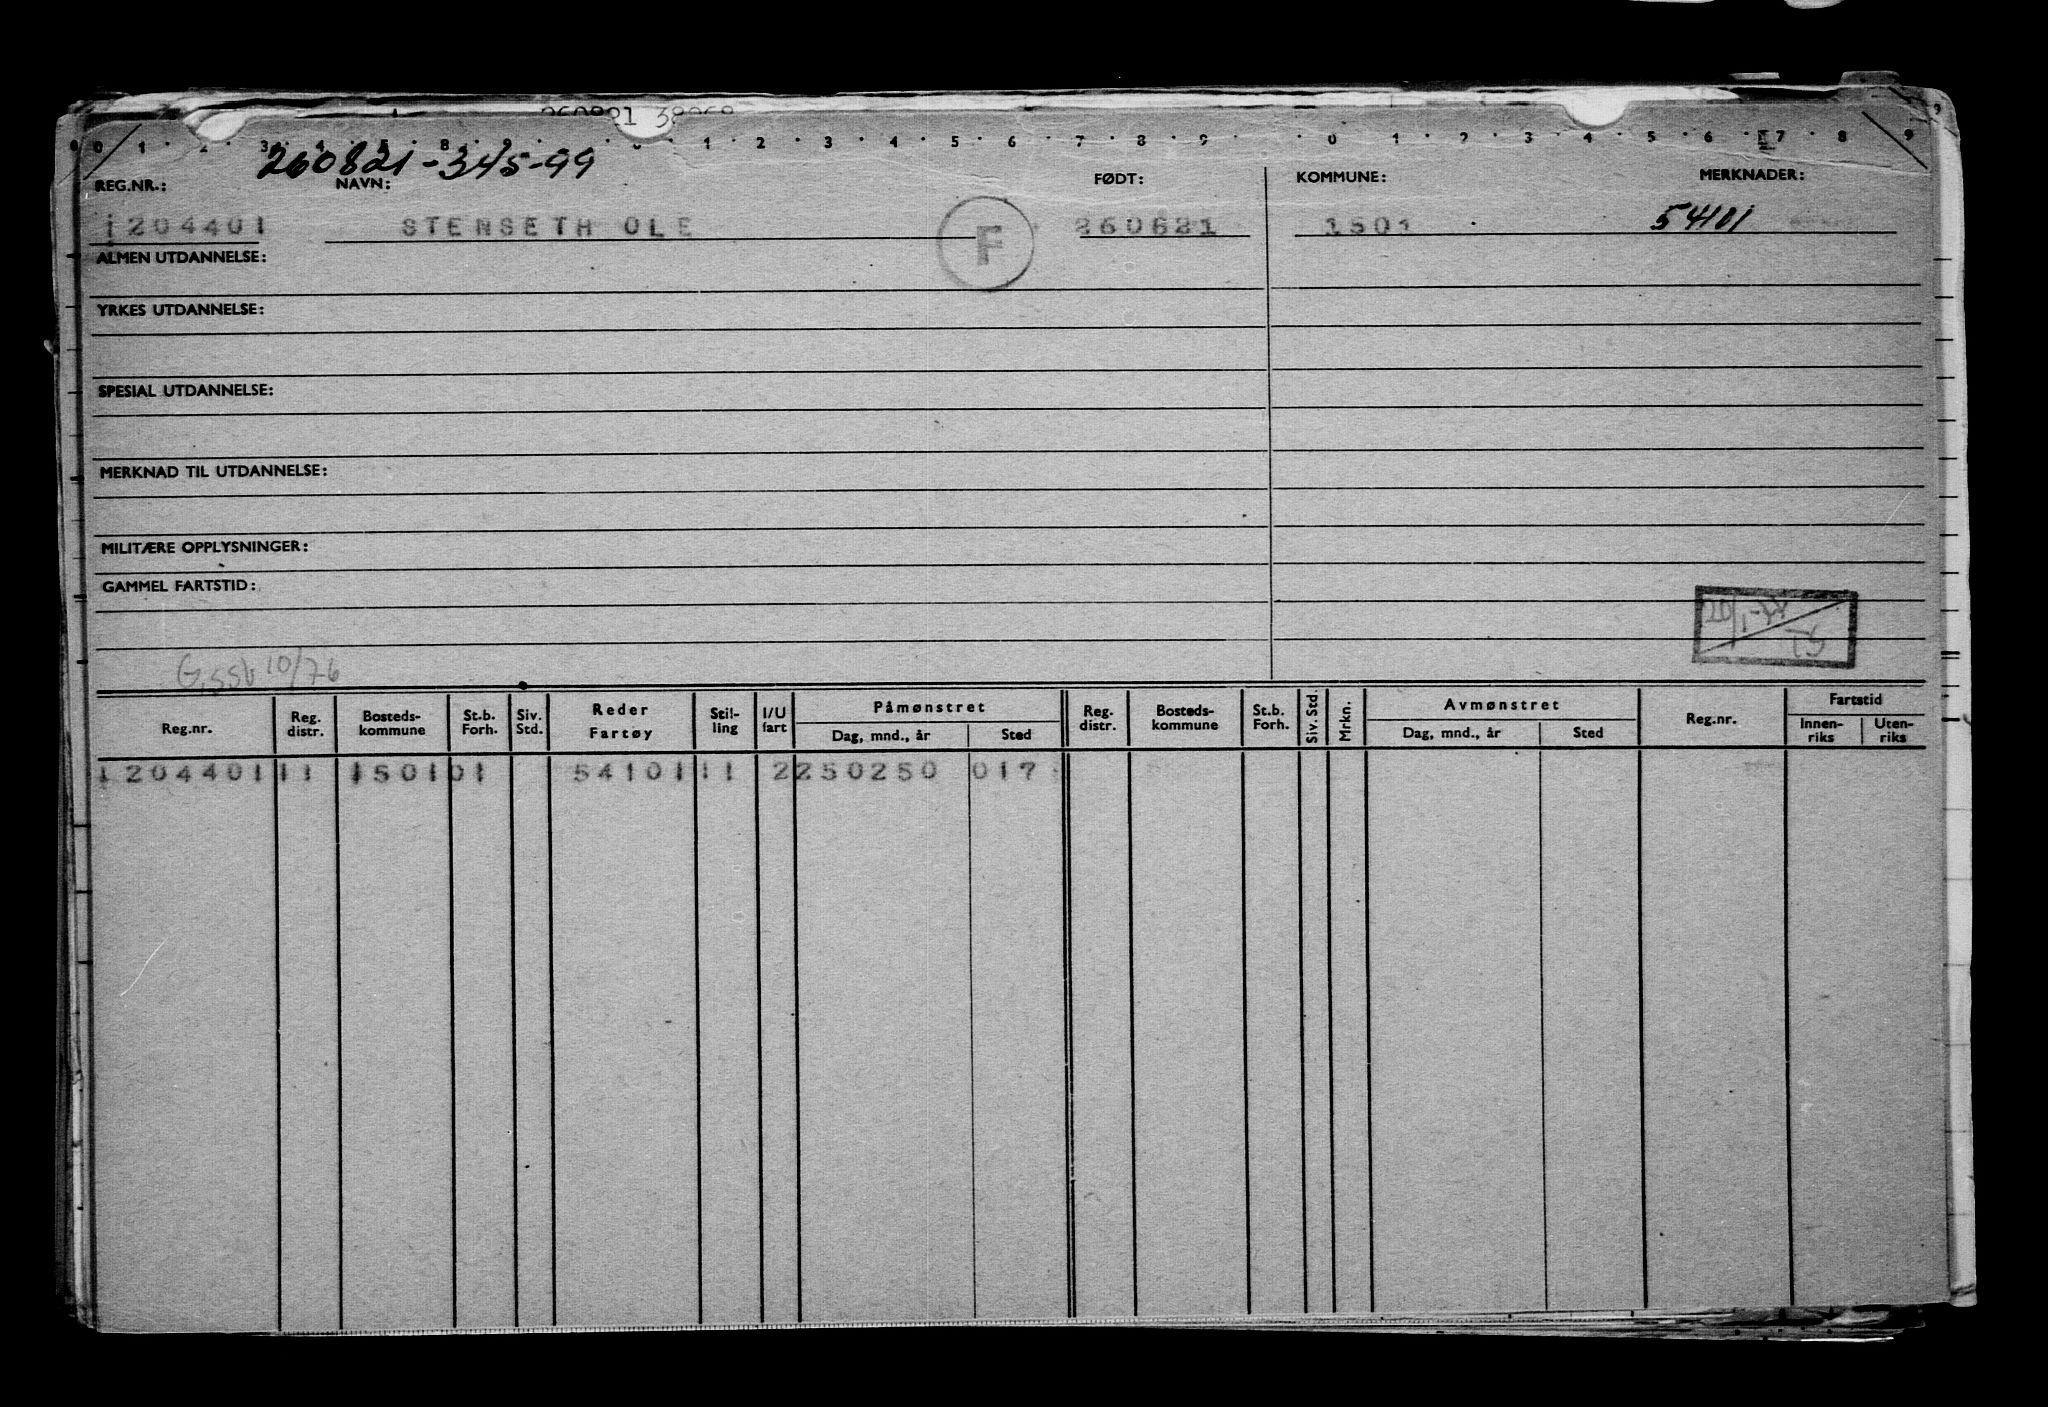 260821 38068
0 1 2 3 4 5 6 7 8 9 0 1 2 3 4 5 6 7 8 9 0 1 2 3 4 5 6 7 8 9
260821-345-99
REG.NR.: NAVN: FØDT: KOMMUNE: MERKNADER:
1204401 STENSETH OLE F 260821 1501 54101
ALMEN UTDANNELSE:
YRKES UTDANNELSE:
SPESIAL UTDANNELSE:
MERKNAD TIL UTDANNELSE:
MILITÆRE OPPLYSNINGER:
GAMMEL FARTSTID:
TS
10/76
Reg.nr. Reg. distr. Bosteds-kommune St.b. Forh. Siv. Std. Reder Fartøy Stil-ling I/U fart Påmønstret Dag, mnd., år Sted Reg. distr. Bosteds-kommune St.b. Forh. Siv. Std. Mrkn. Avmønstret Dag, mnd., år Sted Reg.nr. Fartstid Innen-riks Uten-riks
1204401 11 1501 01 54101 11 2 250250 017